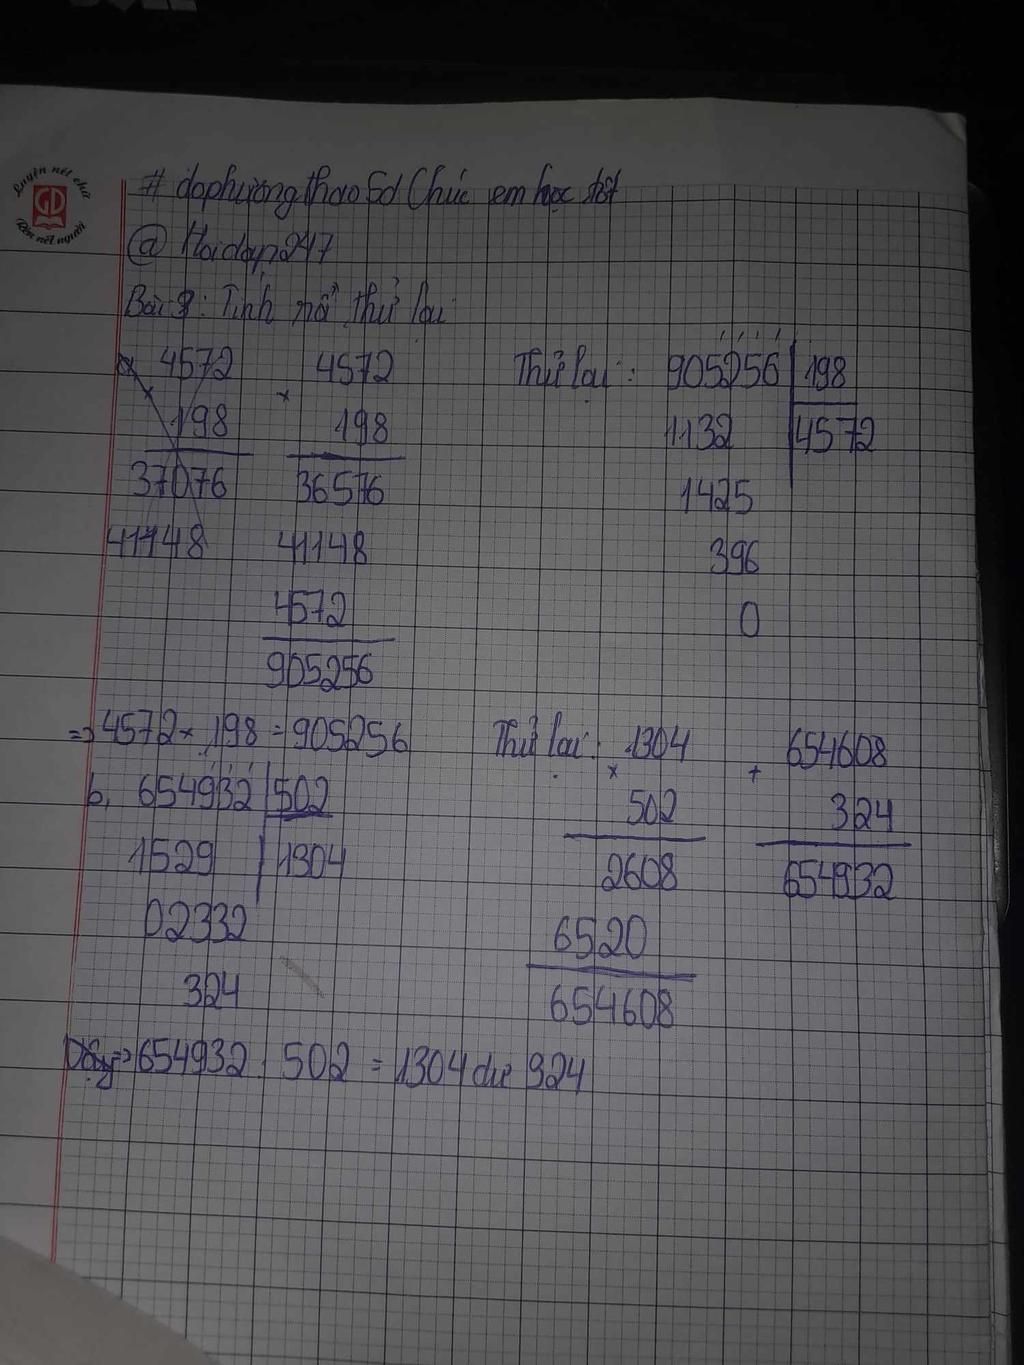 Luyện nét chữ
GD
Rèn nết người
# dophuongthao5d Chúc em học tốt
@ Hoidap247
Bài 3: Tính rồi thử lại
a, 4572
×
198
37076
41148
4572
×
198
36576
41148
4572
905256
Thử lại: 905256 198
1132 4572
1425
396
0
=> 4572 × 198 = 905256
b, 654932 502
1529 1304
02332
324
Thử lại: 1304
×
502
2608
6520
654608
654608
+
324
654932
Vậy => 654932 : 502 = 1304 dư 324